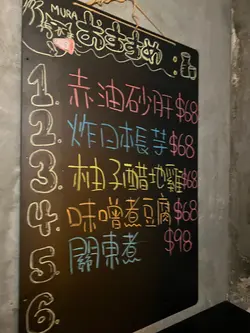 MURA
おすすめ
1. 赤油砂肝 $68
2. 炸日本長芋 $68
3. 柚子醋地雞 $68
4. 味噌煮豆腐 $68
5. 關東煮 $98
6.